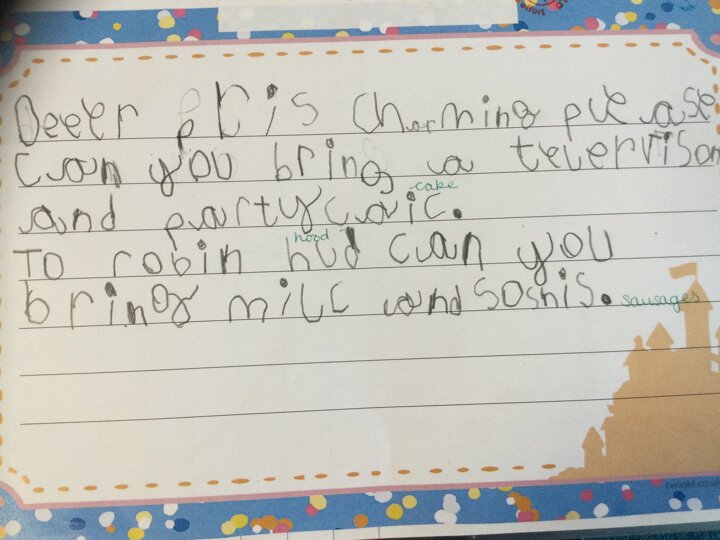 effort
Deeer pRis Charming pleease
can you bring a telervison
cake
and partycaic.
hood
TO robin hud can you
bring milc and soshis. sausages
twinkl.co.uk